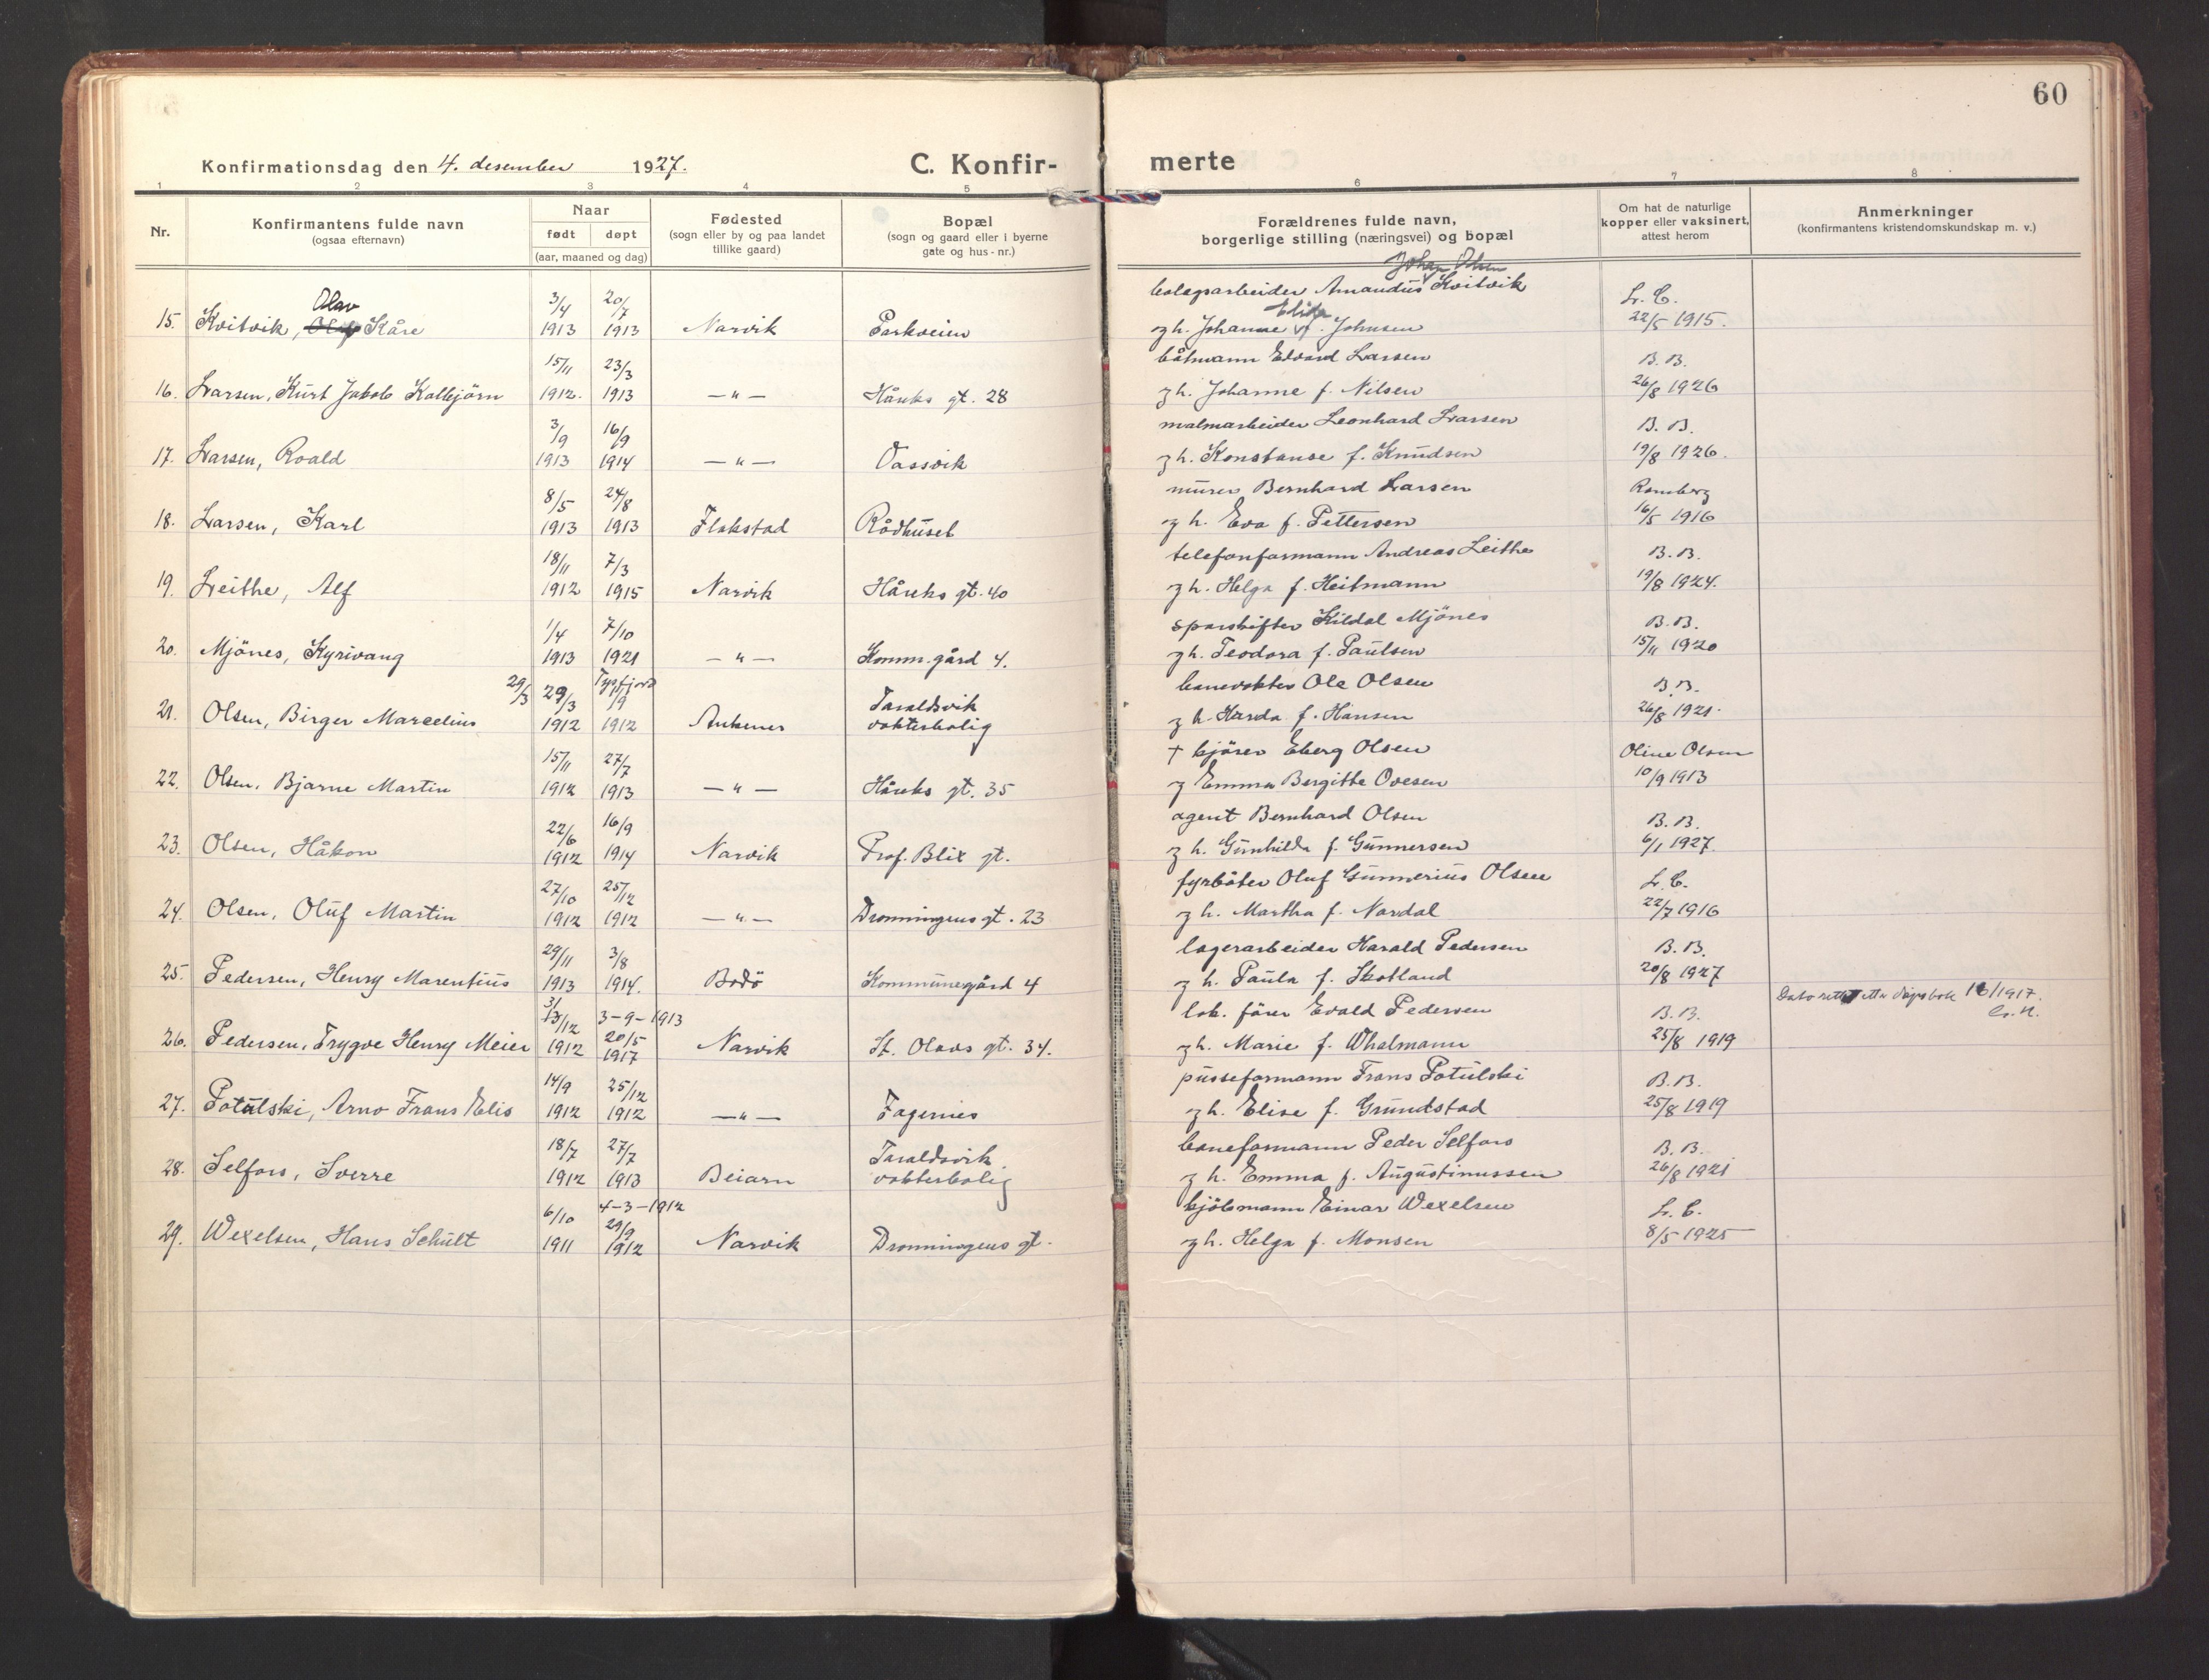 60
Konfirmationsdag den 4. desember 1927. C. Konfir- merte
1 2 3 4 5 6 7 8
Nr. Konfirmantens fulde navn (ogsaa efternavn) Naar født døpt (aar, maaned og dag) Fødested (sogn eller by og paa landet tillike gaard) Bopæl (sogn og gaard eller i byerne gate og hus-nr.) Forældrenes fulde navn, borgerlige stilling (næringsvei) og bopæl Om hat de naturlige kopper eller vaksinert, attest herom Anmerkninger (konfirmantens kristendomskundskap m. v.)
Olav 3/4 20/7 bolagsarbeider Amandus Johan Kvitvik L. C.
15. Kvitvik, Olaf Kåre 1913 1913 Narvik Parkveien g h. Johanne Elise f. Johnsen 22/5 1915.
15/11 23/3 båtmann Edvard Larsen B. B.
16. Larsen, Kurt Jakob Kolbjörn 1912. 1913 — " — Håreks gt. 28 g h. Johanne f. Nilsen 26/8 1926
3/9 16/9 malmarbeider Leonhard Larsen B. B.
17. Larsen, Roald 1913 1914 — " — Vassvik g h. Konstanse f. Knudsen 19/8 1926.
8/5 24/8 murer Bernhard Larsen Ramberg
18. Larsen, Karl 1913 1913 Flakstad Rådhuset g h. Eva f. Pettersen 16/5 1916
18/11 7/3 telefonformann Andreas Leithe B. B.
19. Leithe, Alf 1912 1915 Narvik Håreks gt. 40 g h. Helga f. Heitmann 19/8 1924.
1/4 7/10 sporskifter Kildal Mjönes B. B.
20. Mjönes, Kyrivang 1913 1921 — " — Komm.gård 4. g h. Teodora f. Paulsen 15/11 1920
29/3 29/3 Tysfjord /9 Taraldsvik banevokter Ole Olsen B. B.
21. Olsen, Birger Marcelius 1912 1912 Ankenes vokterbolig g h. Harda f. Hansen 26/8 1921.
15/11 27/7 † kjörer Eberg Olsen Oline Olsen
22. Olsen, Bjarne Martin 1912 1913 — " — Håreks gt. 35 g Emma Bergitte Ovesen 10/9 1913
22/6 16/9 agent Bernhard Olsen B. B.
23. Olsen, Håkon 1912 1914 Narvik Prof. Blix gt. g h. Gunhilda f. Gunnersen 6/1 1927.
27/10 25/12 fyrböter Oluf Gunnerius Olsen L. C.
24. Olsen, Oluf Martin 1912 1912 — " — Dronningens gt. 23 g h. Martha f. Nordal 22/7 1916
29/11 3/8 lagerarbeider Harald Pedersen B. B.
25. Pedersen, Henry Marentius 1913 1914. Bodö Kommunegård 4 g h. Paula f. Skotland 20/8 1927
31/12 3-9-1913 20/5 lok. förer Evald Pedersen B. B. Dato rettet etter dåpsbok 16/1917.
26. Pedersen, Trygve Henry Meier 1912 1917 Narvik St. Olavs gt. 34. g h. Marie f. Whalmann 25/8 1919
14/9 25/12 pusseformann Frans Potulski B. B.
27. Potulski, Arno Frans Elis 1912 1912 — " — Fagernes g h. Elise f. Grundstad 25/8 1919
18/7 27/7 Taraldsvik baneformann Peder Selfors B. B.
28. Selfors, Sverre 1912 1913 Beiarn vokterbolig g h. Emma f. Augustinussen 26/8 1921
6/10 4-3-1912 29/9 kjöbmann Einar Wexelsen L. C.
29. Wexelsen, Hans Schult 1911 1912 Narvik Dronningens gt. g h. Helga f. Monsen 8/5 1925